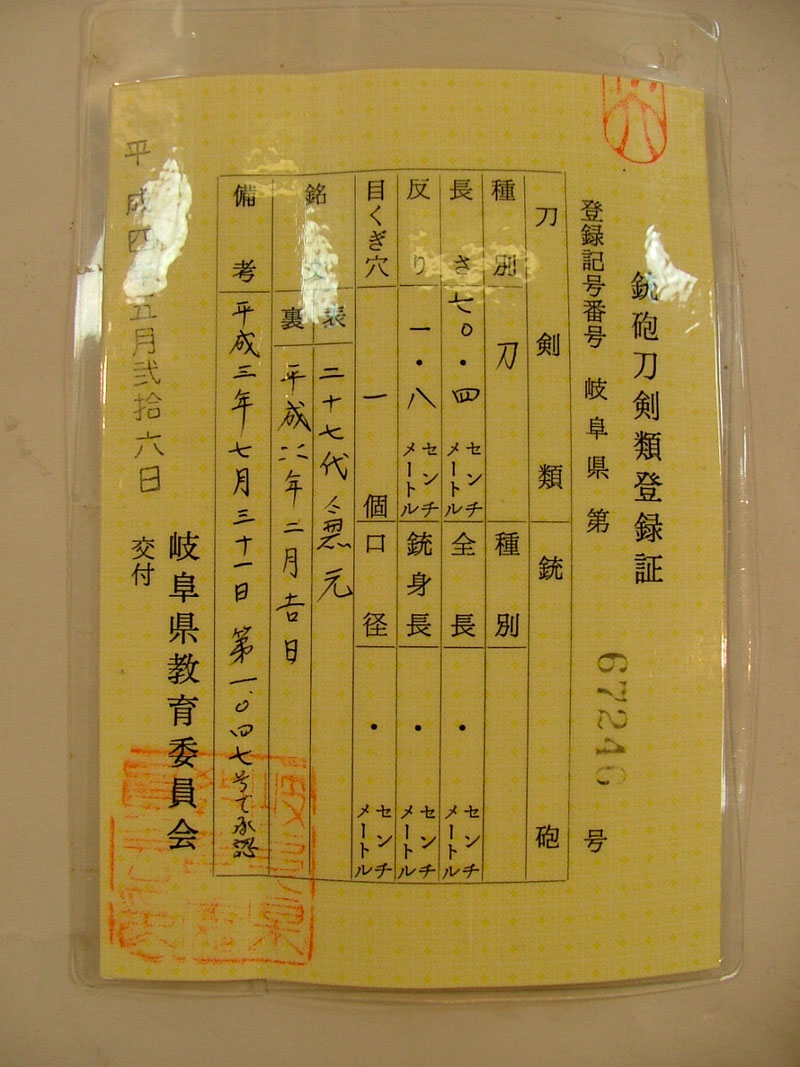 銃砲刀剣類登録証
登録記号番号 岐阜県 第 67246 号
刀剣類 銃砲
種別 刀 種別
長さ 七〇・四 センチメートル 全長 ・ センチメートル
反り 一・八 センチメートル 銃身長 ・ センチメートル
目くぎ穴 一個 口径 ・ センチメートル
銘文 表 二十七代 兼元
裏 平成 年二月吉日
備考 平成三年七月三十一日 第一〇四七号で承認
平成四年五月弐拾六日 交付
岐阜県教育委員会